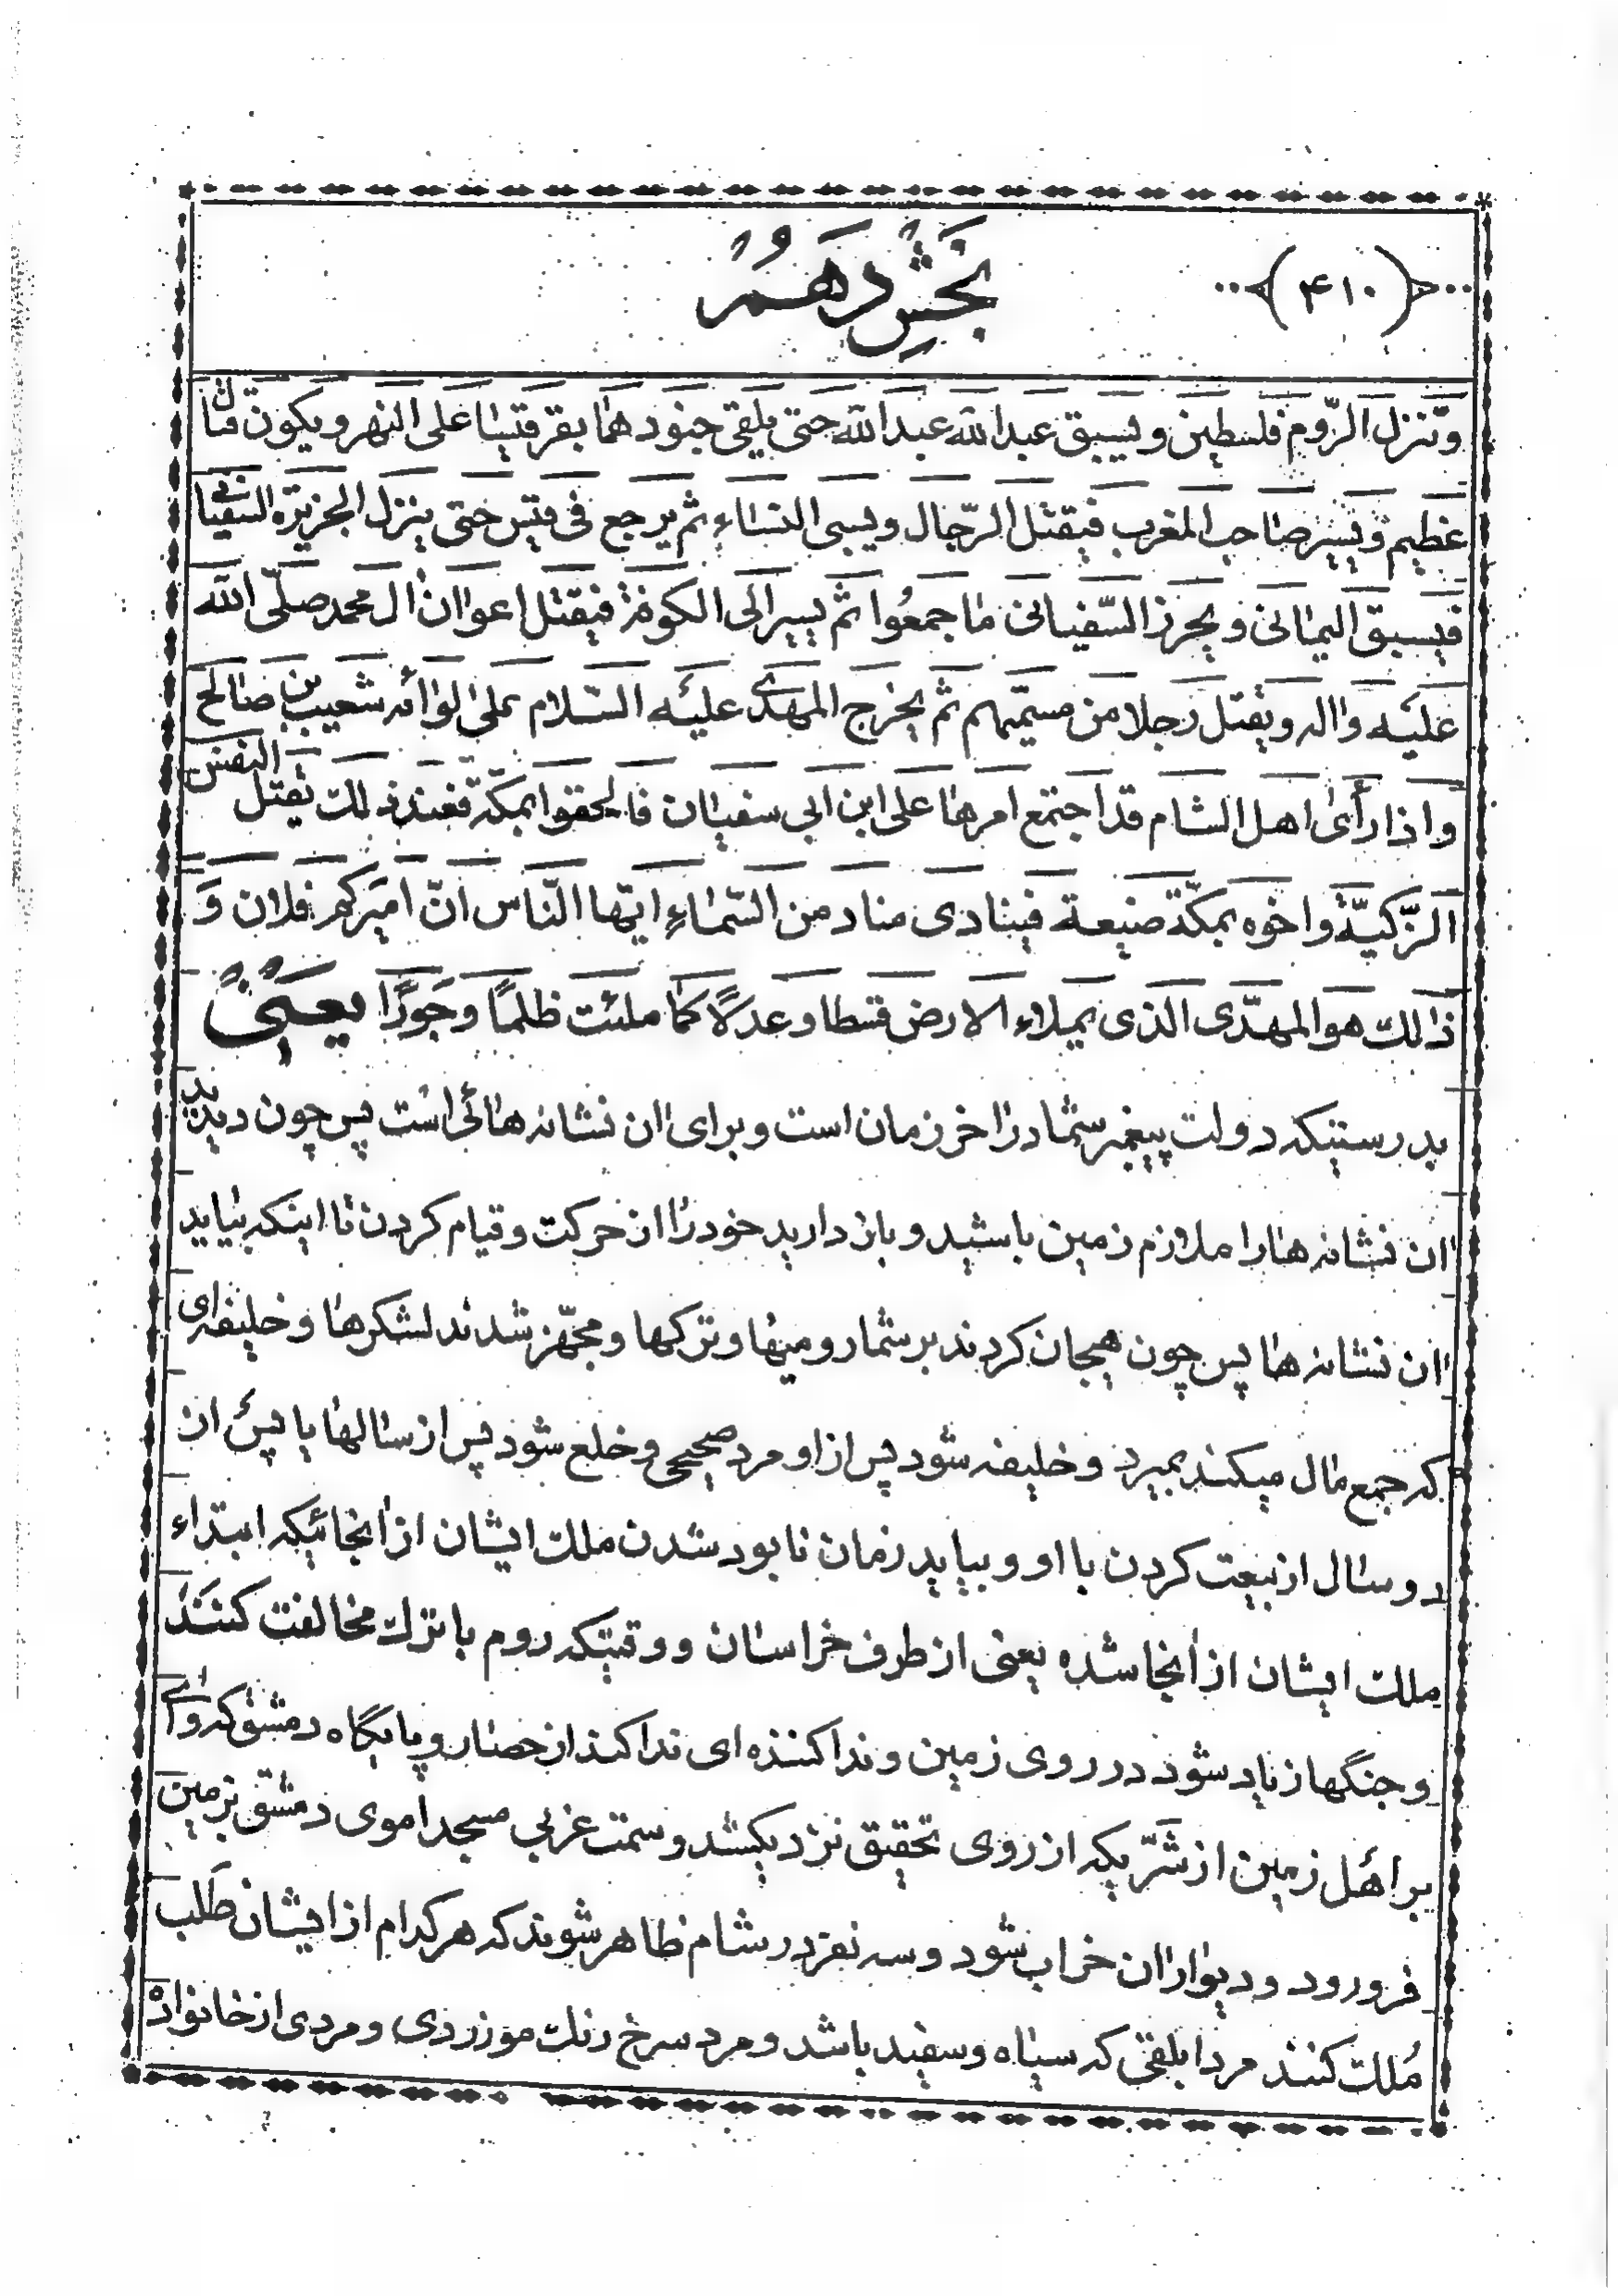 (۴۱۰)
بخش دهم
وتنزل الرّوم فلسطین ویسبق عبدالله عبدالله حتی یلقی جنودهما بقرقیسا علی النهر ویکون قتال
عظیم ویسیر صاحب المغرب فیقتل الرّجال ویسبی النساء ثم یرجع فی قیس حتی ینزل الجزیرة السفیانی
فیسبق الیمانی ویحرز السّفیانی ما جمعوا ثم یسیر الی الکوفة فیقتل اعوان ال محمد صلّی الله
علیه واله ویقتل رجلا من مسمّیهم ثم یخرج المهدی علیه السّلام علی لوائه شعیب بن صالح
واذا رأی اهل الشام قد اجتمع امرها علی ابن ابی سفیان فالحقوا بمکّة فعند ذلک یقتل النفس
الزّکیّة واخوه بمکّة ضیعة فینادی مناد من السّماء ایّها النّاس انّ امیرکم فلان وَ
ذلک هو المهدّی الذی یملاء الارض قسطا وعدلاً کما ملئت ظلماً وجوراً یعنی
بدرستیکه دولت پیغمبر شما در اخر زمان است وبرای ان نشانه هائی است پس چون دیدید
ان نشانه هارا ملازم زمین باشید و باز دارید خود را از حرکت وقیام کردن تا اینکه بیاید
ان نشانه ها پس چون هیجان کردند بر شما رومیها و ترکها ومجهّز شدند لشکرها وخلیفه ای
که جمع مال میکند بمیرد وخلیفه شود پس از او مرد صحیحی وخلع شود پس از سالها یا پس از
دو سال از بیعت کردن با او و بیاید زمان نابود شدن ملک ایشان از انجائیکه ابتداء
ملک ایشان از انجا شده یعنی از طرف خراسان ووقتیکه روم با ترک مخالفت کنند
وجنگها زیاد شود در روی زمین وندا کننده ای ندا کند از حصار وپایگاه دمشق که وای
بر اهل زمین از شرّیکه از روی تحقیق نزدیکشد وسمت غربی مسجد اموی دمشق بزمین
فرو رود ودیوار ان خراب شود وسه نفر در شام ظاهر شوند که هر کدام از ایشان طلب
مُلک کنند مرد ابلقی که سیاه وسفید باشد ومرد سرخ رنک مو زردی ومردی از خانواده